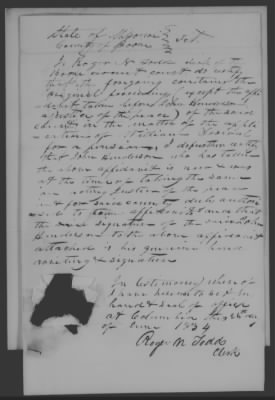 State of Missouri } Sct
County of Boone }
I Roger N Todd clerk of
Boone county court do certify
that the foregoing contains the
original proceedings (except the affi
davit taken before John Henderson
a Justice of the peace) of the said
court in the matter of the appli
cation of William
for a pension, I do further certify
that John Henderson who has taken
the above affidavit is now & was
at the time of taking the same
an acting Justice of the peace
in & for said county duly author
ised to take affidavits & and that
the signature of the said John
Henderson to the above affidavit
attached is his genuine hand
writing & signature
In testimony whereof
I have hereunto set my
hand & seal of office
at Columbia this day
of June 1834
Roger N Todd
Clerk